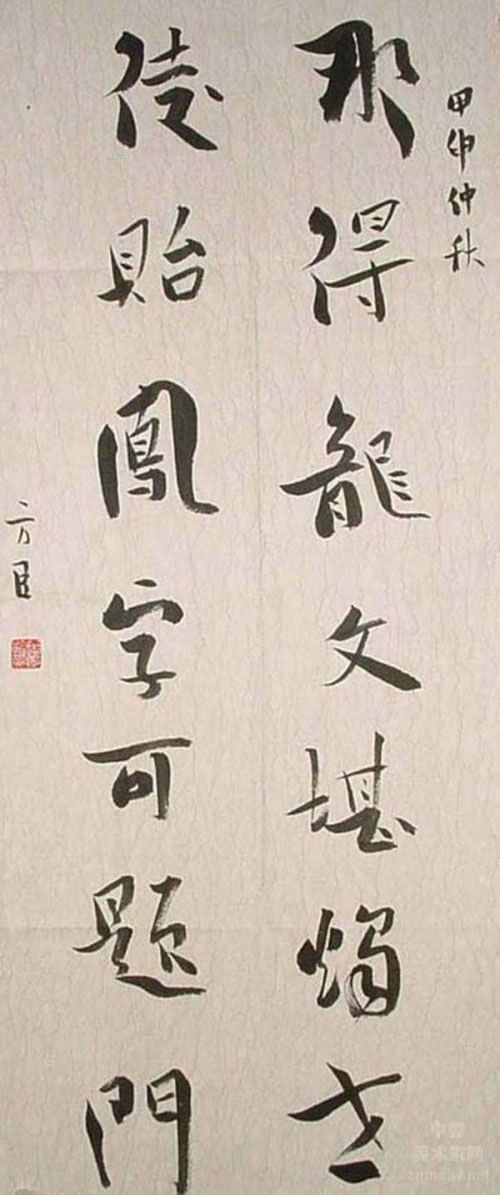 甲申仲秋
那得龍文堪燭世
徒貽鳳字可題門
方臣
美术家网
zgmsjw.net